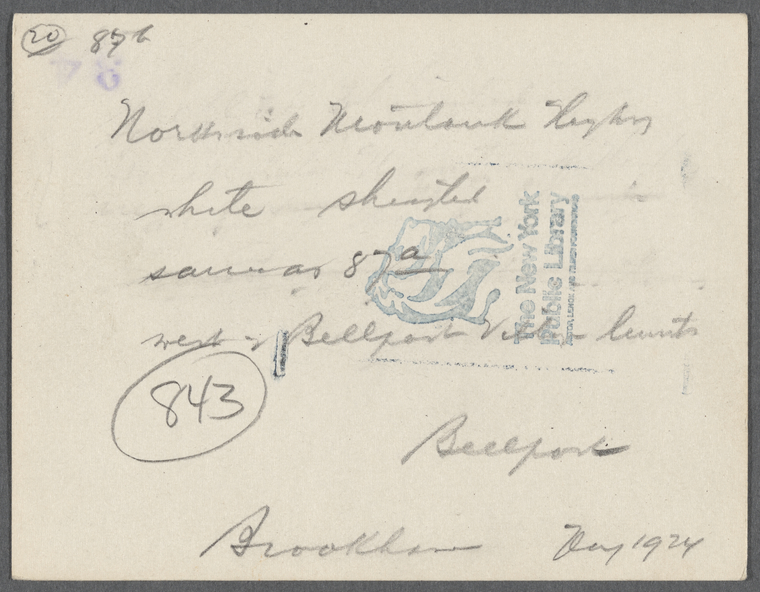 20 87b
78
North side Montauk Highway
white shingled
same as 87a
west of Bellport Village limits
843
Bellport
Brookhaven
1924
The New York
Public Library
ASTOR, LENOX AND TILDEN FOUNDATIONS